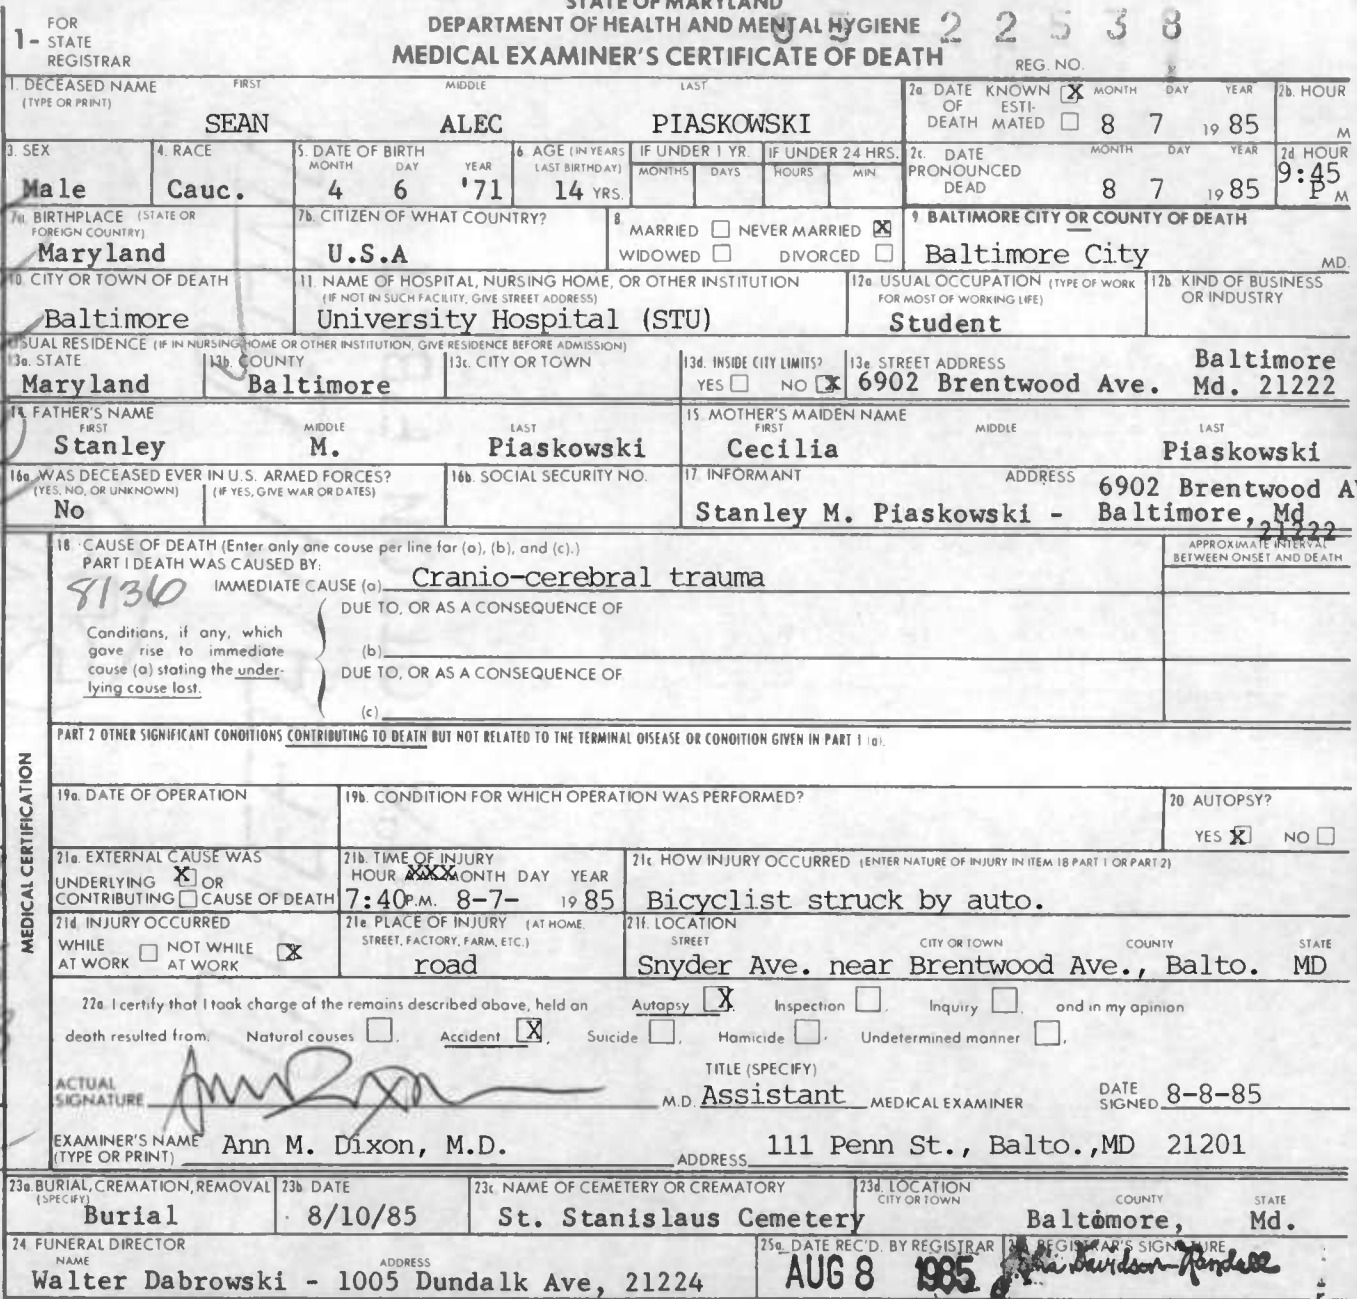 STATE OF MARYLAND
DEPARTMENT OF HEALTH AND MENTAL HYGIENE
MEDICAL EXAMINER'S CERTIFICATE OF DEATH
1- FOR STATE REGISTRAR
REG. NO. 22538
1. DECEASED NAME (TYPE OR PRINT) FIRST MIDDLE LAST
SEAN ALEC PIASKOWSKI
2a. DATE OF DEATH KNOWN X ESTIMATED MONTH DAY YEAR 8 7 1985
2b. HOUR M
3. SEX Male
4. RACE Cauc.
5. DATE OF BIRTH MONTH DAY YEAR 4 6 '71
6. AGE (IN YEARS LAST BIRTHDAY) 14 YRS.
IF UNDER 1 YR. MONTHS DAYS
IF UNDER 24 HRS. HOURS MIN
2c. DATE PRONOUNCED DEAD MONTH DAY YEAR 8 7 1985
2d HOUR 9:45 P M
7a. BIRTHPLACE (STATE OR FOREIGN COUNTRY) Maryland
7b. CITIZEN OF WHAT COUNTRY? U.S.A
8. MARRIED NEVER MARRIED X
WIDOWED DIVORCED
9. BALTIMORE CITY OR COUNTY OF DEATH
Baltimore City MD.
10. CITY OR TOWN OF DEATH Baltimore
11. NAME OF HOSPITAL, NURSING HOME, OR OTHER INSTITUTION
(IF NOT IN SUCH FACILITY, GIVE STREET ADDRESS)
University Hospital (STU)
12a. USUAL OCCUPATION (TYPE OF WORK FOR MOST OF WORKING LIFE) Student
12b. KIND OF BUSINESS OR INDUSTRY
USUAL RESIDENCE (IF IN NURSING HOME OR OTHER INSTITUTION, GIVE RESIDENCE BEFORE ADMISSION)
13a. STATE Maryland
13b. COUNTY Baltimore
13c. CITY OR TOWN
13d. INSIDE CITY LIMITS? YES NO X
13e STREET ADDRESS 6902 Brentwood Ave. Baltimore Md. 21222
14. FATHER'S NAME FIRST MIDDLE LAST
Stanley M. Piaskowski
15. MOTHER'S MAIDEN NAME FIRST MIDDLE LAST
Cecilia Piaskowski
16a. WAS DECEASED EVER IN U.S. ARMED FORCES?
(YES, NO, OR UNKNOWN) (IF YES, GIVE WAR OR DATES)
No
16b. SOCIAL SECURITY NO.
17 INFORMANT ADDRESS
Stanley M. Piaskowski - 6902 Brentwood Av Baltimore, Md 21222
18. CAUSE OF DEATH (Enter only one cause per line for (a), (b), and (c).)
PART I DEATH WAS CAUSED BY:
8136
IMMEDIATE CAUSE (a) Cranio-cerebral trauma
APPROXIMATE INTERVAL BETWEEN ONSET AND DEATH
DUE TO, OR AS A CONSEQUENCE OF
(b)
DUE TO, OR AS A CONSEQUENCE OF
(c)
Conditions, if any, which
gave rise to immediate
cause (a) stating the under-
lying cause lost.
PART 2 OTHER SIGNIFICANT CONDITIONS CONTRIBUTING TO DEATH BUT NOT RELATED TO THE TERMINAL DISEASE OR CONDITION GIVEN IN PART 1 (a).
MEDICAL CERTIFICATION
19a. DATE OF OPERATION
19b. CONDITION FOR WHICH OPERATION WAS PERFORMED?
20 AUTOPSY? YES X NO
21a. EXTERNAL CAUSE WAS
UNDERLYING X OR
CONTRIBUTING CAUSE OF DEATH
21b. TIME OF INJURY
HOUR XXX MONTH DAY YEAR
7:40 P.M. 8-7- 1985
21c HOW INJURY OCCURRED (ENTER NATURE OF INJURY IN ITEM 18 PART 1 OR PART 2)
Bicyclist struck by auto.
21d. INJURY OCCURRED
WHILE AT WORK NOT WHILE AT WORK X
21e PLACE OF INJURY (AT HOME, STREET, FACTORY, FARM, ETC.)
road
21f. LOCATION STREET CITY OR TOWN COUNTY STATE
Snyder Ave. near Brentwood Ave., Balto. MD
22a. I certify that I took charge of the remains described above, held an Autopsy X, Inspection, Inquiry and in my opinion
death resulted from. Natural causes, Accident X, Suicide, Homicide, Undetermined manner.
ACTUAL SIGNATURE Ann Dixon
M.D.
TITLE (SPECIFY) Assistant MEDICAL EXAMINER
DATE SIGNED 8-8-85
EXAMINER'S NAME (TYPE OR PRINT) Ann M. Dixon, M.D.
ADDRESS 111 Penn St., Balto.,MD 21201
23a. BURIAL, CREMATION, REMOVAL (SPECIFY) Burial
23b DATE 8/10/85
23c. NAME OF CEMETERY OR CREMATORY St. Stanislaus Cemetery
23d. LOCATION CITY OR TOWN COUNTY STATE
Baltimore, Md.
24. FUNERAL DIRECTOR NAME ADDRESS
Walter Dabrowski - 1005 Dundalk Ave, 21224
25a. DATE REC'D. BY REGISTRAR AUG 8 1985
REGISTRAR'S SIGNATURE
Davidson-Randall